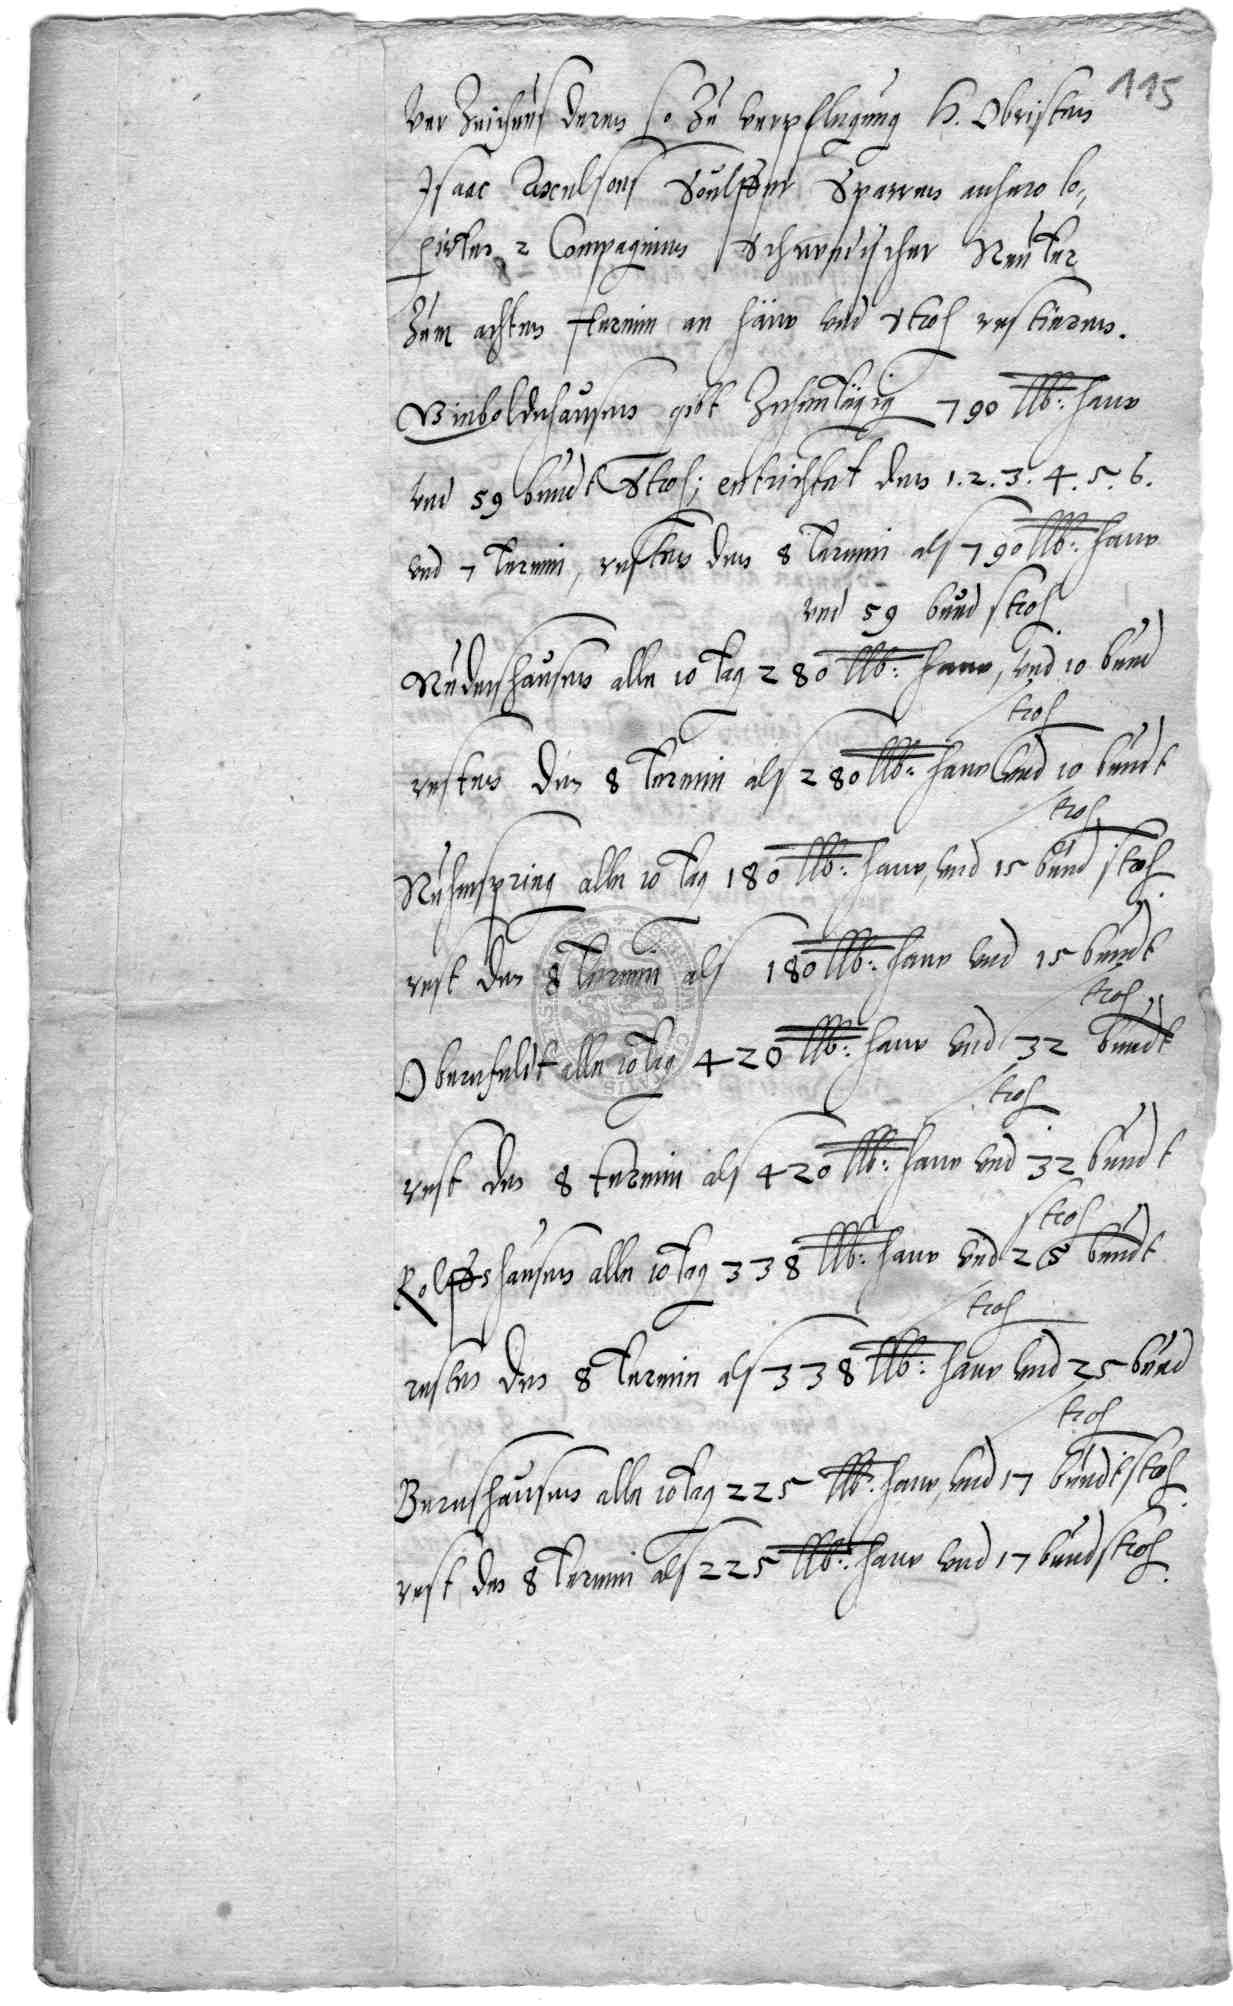 115
Verzeichnus deren so zu verpflegung H. Obristen
Isaac Axculsons Sparren anhero lo-
girten 2 Compagnien Schwedischer Reüter
zum achten termin an häw vnd stroh restieren.
Gieboldehausen gibt Zehentägig 790 llb: haw
vnd 59 bundt Stroh; entrichtet den 1. 2. 3. 4. 5. 6.
vnd 7 termin, resten den 8 termin als 790 llb: haw
vnd 59 bund stroh
Rüdershausen alle 10 tag 280 llb: haw, vnd 10 bund
stroh
resten den 8 termin als 280 llb: haw vnd 10 bundt
stroh
Ruhmspring alle 10 tag 180 llb: haw, vnd 15 bund stroh.
rest den 8 termin als 180 llb: haw vnd 15 bundt
stroh
Obernfeldt alle 10 tag 420 llb: haw vnd 32 bundt
stroh
rest den 8 termin als 420 llb: haw vnd 32 bundt
stroh
Rolffshausen alle 10 tag 338 llb: haw vnd 25 bundt
stroh
resten den 8 termin als 338 llb: haw vnd 25 bund
stroh
Bernshausen alle 10 tag 225 llb: haw, vnd 17 bundt stroh.
rest den 8 termin als 225 llb: haw vnd 17 bund stroh.